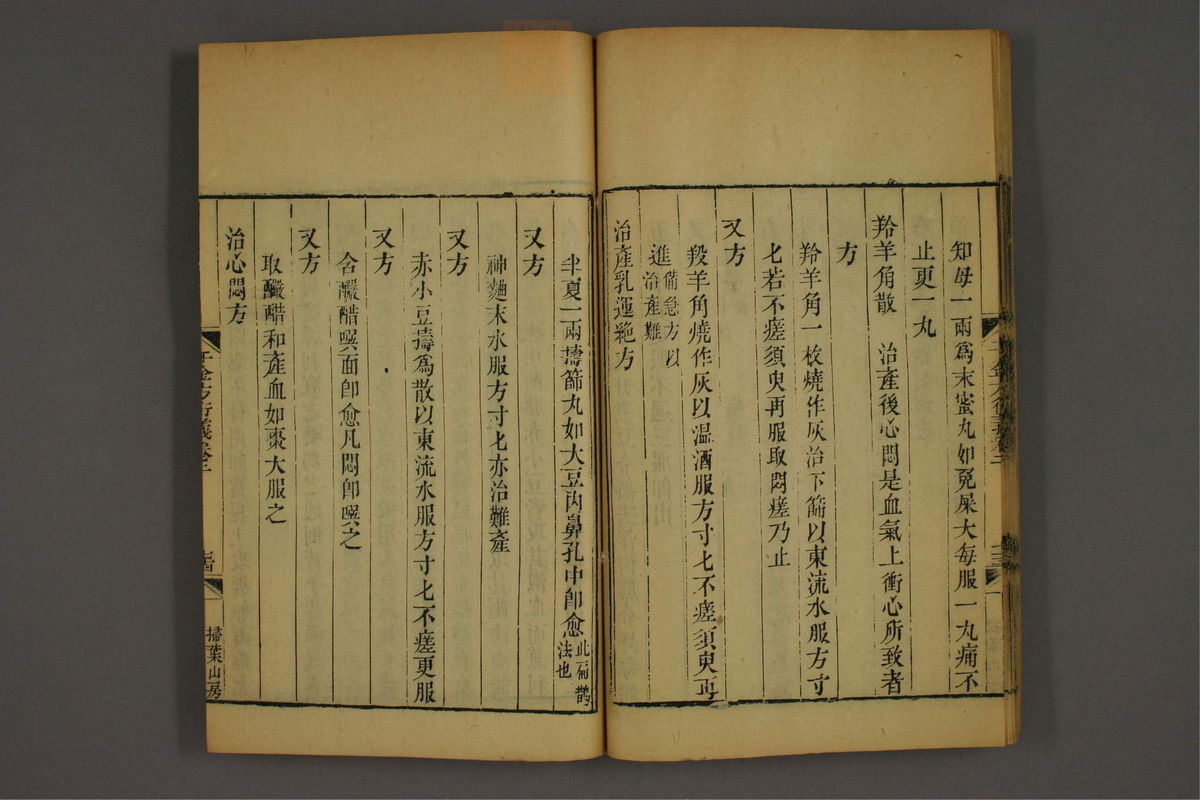 知母一兩爲末蜜丸如兔屎大每服一丸痛不
止更一丸
羚羊角散　治產後心悶是血氣上衝心所致者
方
羚羊角一枚燒作灰治下篩以東流水服方寸
匕若不瘥須臾再服取悶瘥乃止
又方
羖羊角燒作灰以溫酒服方寸匕不瘥須臾再
進備急方以
治產難
治產乳運絶方
半夏一兩擣篩丸如大豆內鼻孔中卽愈此扁鵲
法也
又方
神麯末水服方寸匕亦治難產
又方
赤小豆擣爲散以東流水服方寸匕不瘥更服
又方
含釅醋噀面卽愈凡悶卽噀之
又方
取釅醋和產血如棗大服之
治心悶方
千金方衍義卷三
掃葉山房